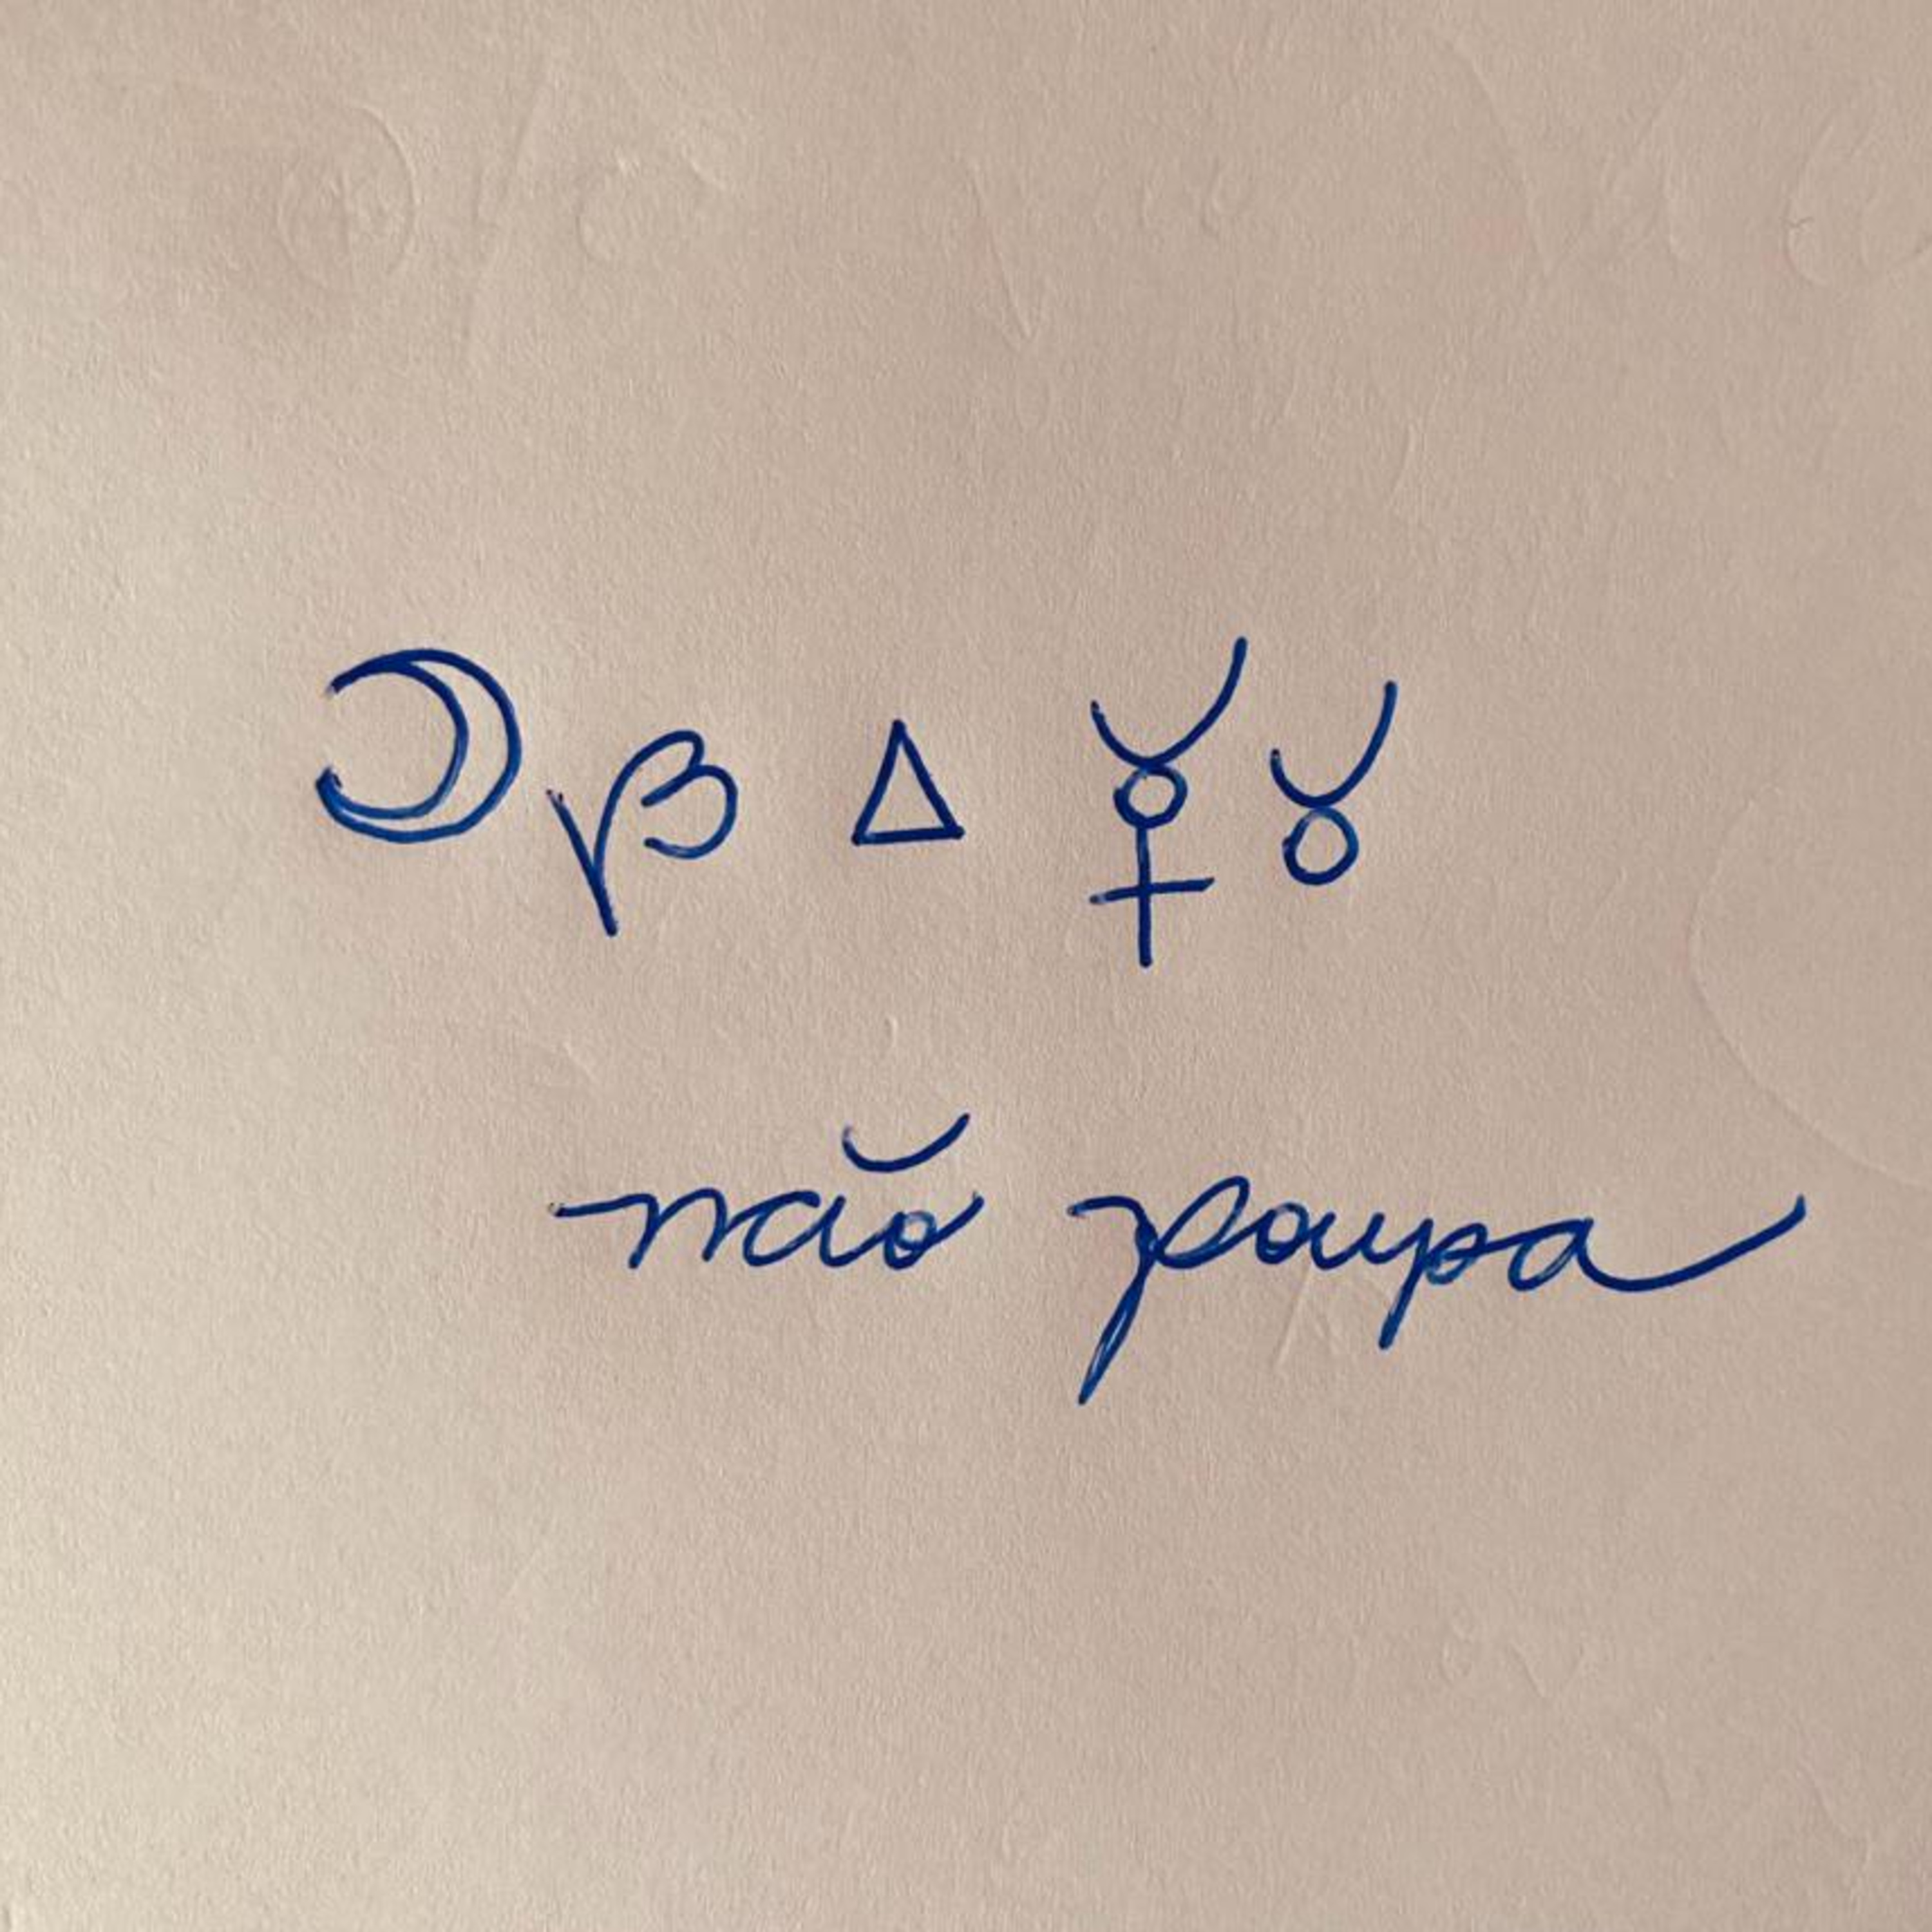 ☽♑ △ ☿♉
não poupa